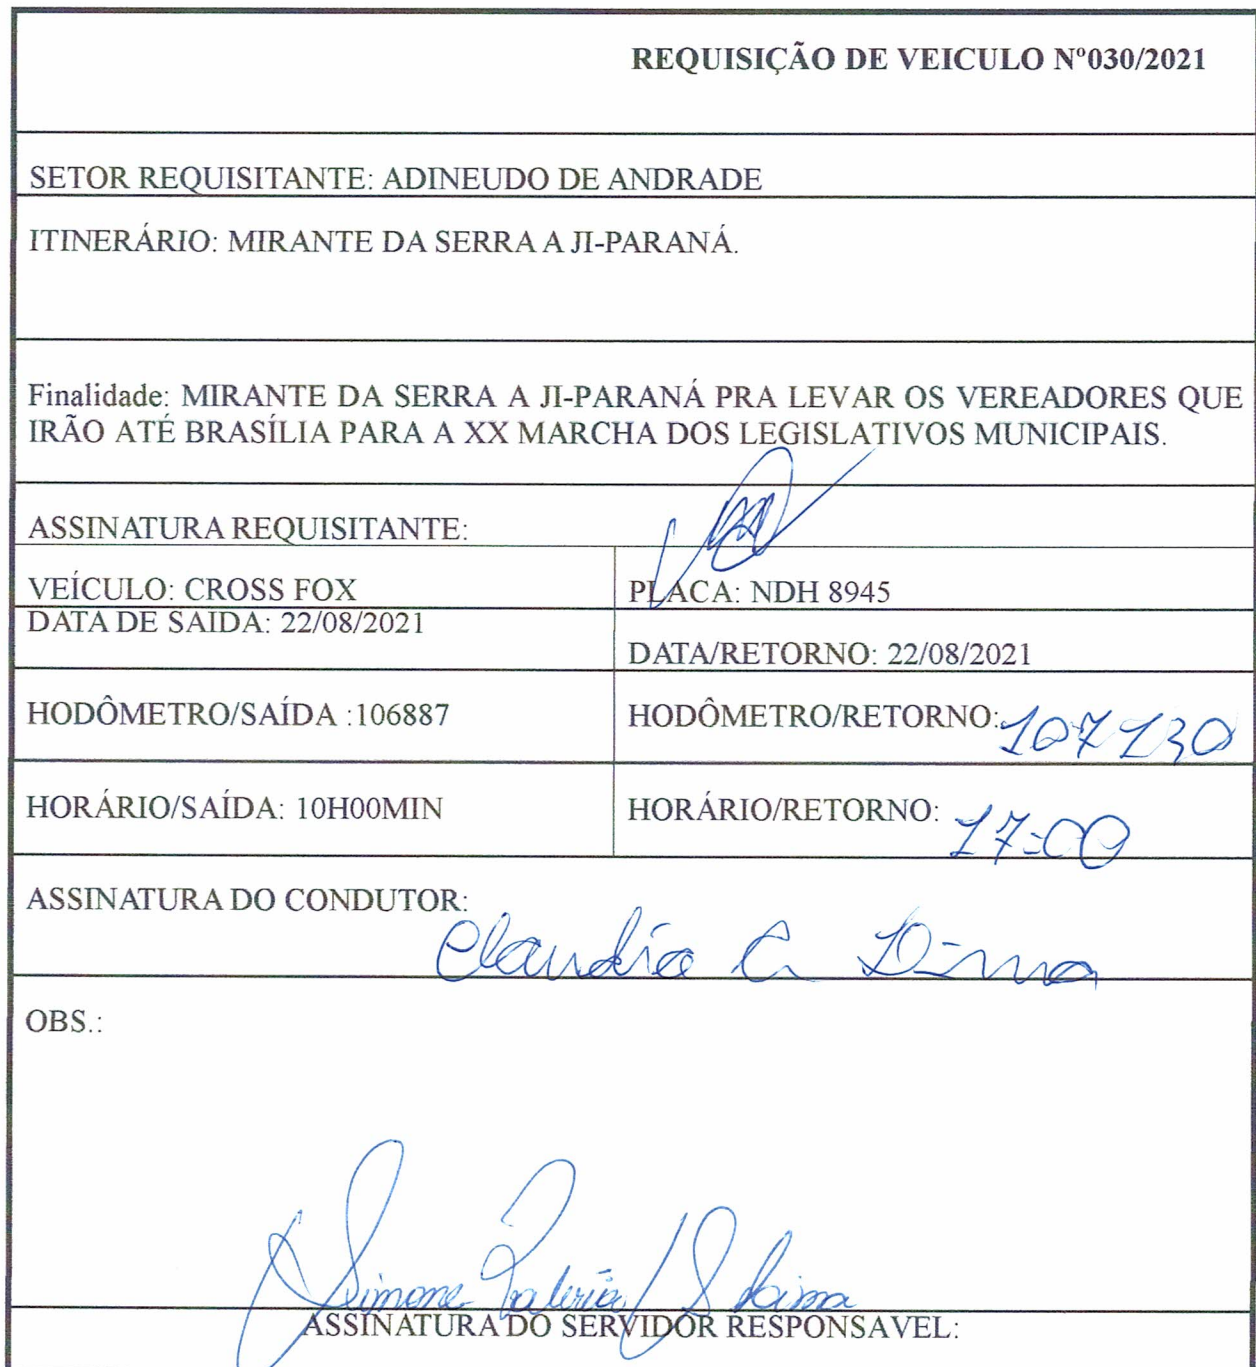 REQUISIÇÃO DE VEICULO Nº030/2021
SETOR REQUISITANTE: ADINEUDO DE ANDRADE
ITINERÁRIO: MIRANTE DA SERRA A JI-PARANÁ.
Finalidade: MIRANTE DA SERRA A JI-PARANÁ PRA LEVAR OS VEREADORES QUE
IRÃO ATÉ BRASÍLIA PARA A XX MARCHA DOS LEGISLATIVOS MUNICIPAIS.
ASSINATURA REQUISITANTE:
VEÍCULO: CROSS FOX
PLACA: NDH 8945
DATA DE SAIDA: 22/08/2021
DATA/RETORNO: 22/08/2021
HODÔMETRO/SAÍDA :106887
HODÔMETRO/RETORNO: 107130
HORÁRIO/SAÍDA: 10H00MIN
HORÁRIO/RETORNO: 17:00
ASSINATURA DO CONDUTOR:
Claudia
OBS.:
Simone
ASSINATURA DO SERVIDOR RESPONSAVEL: